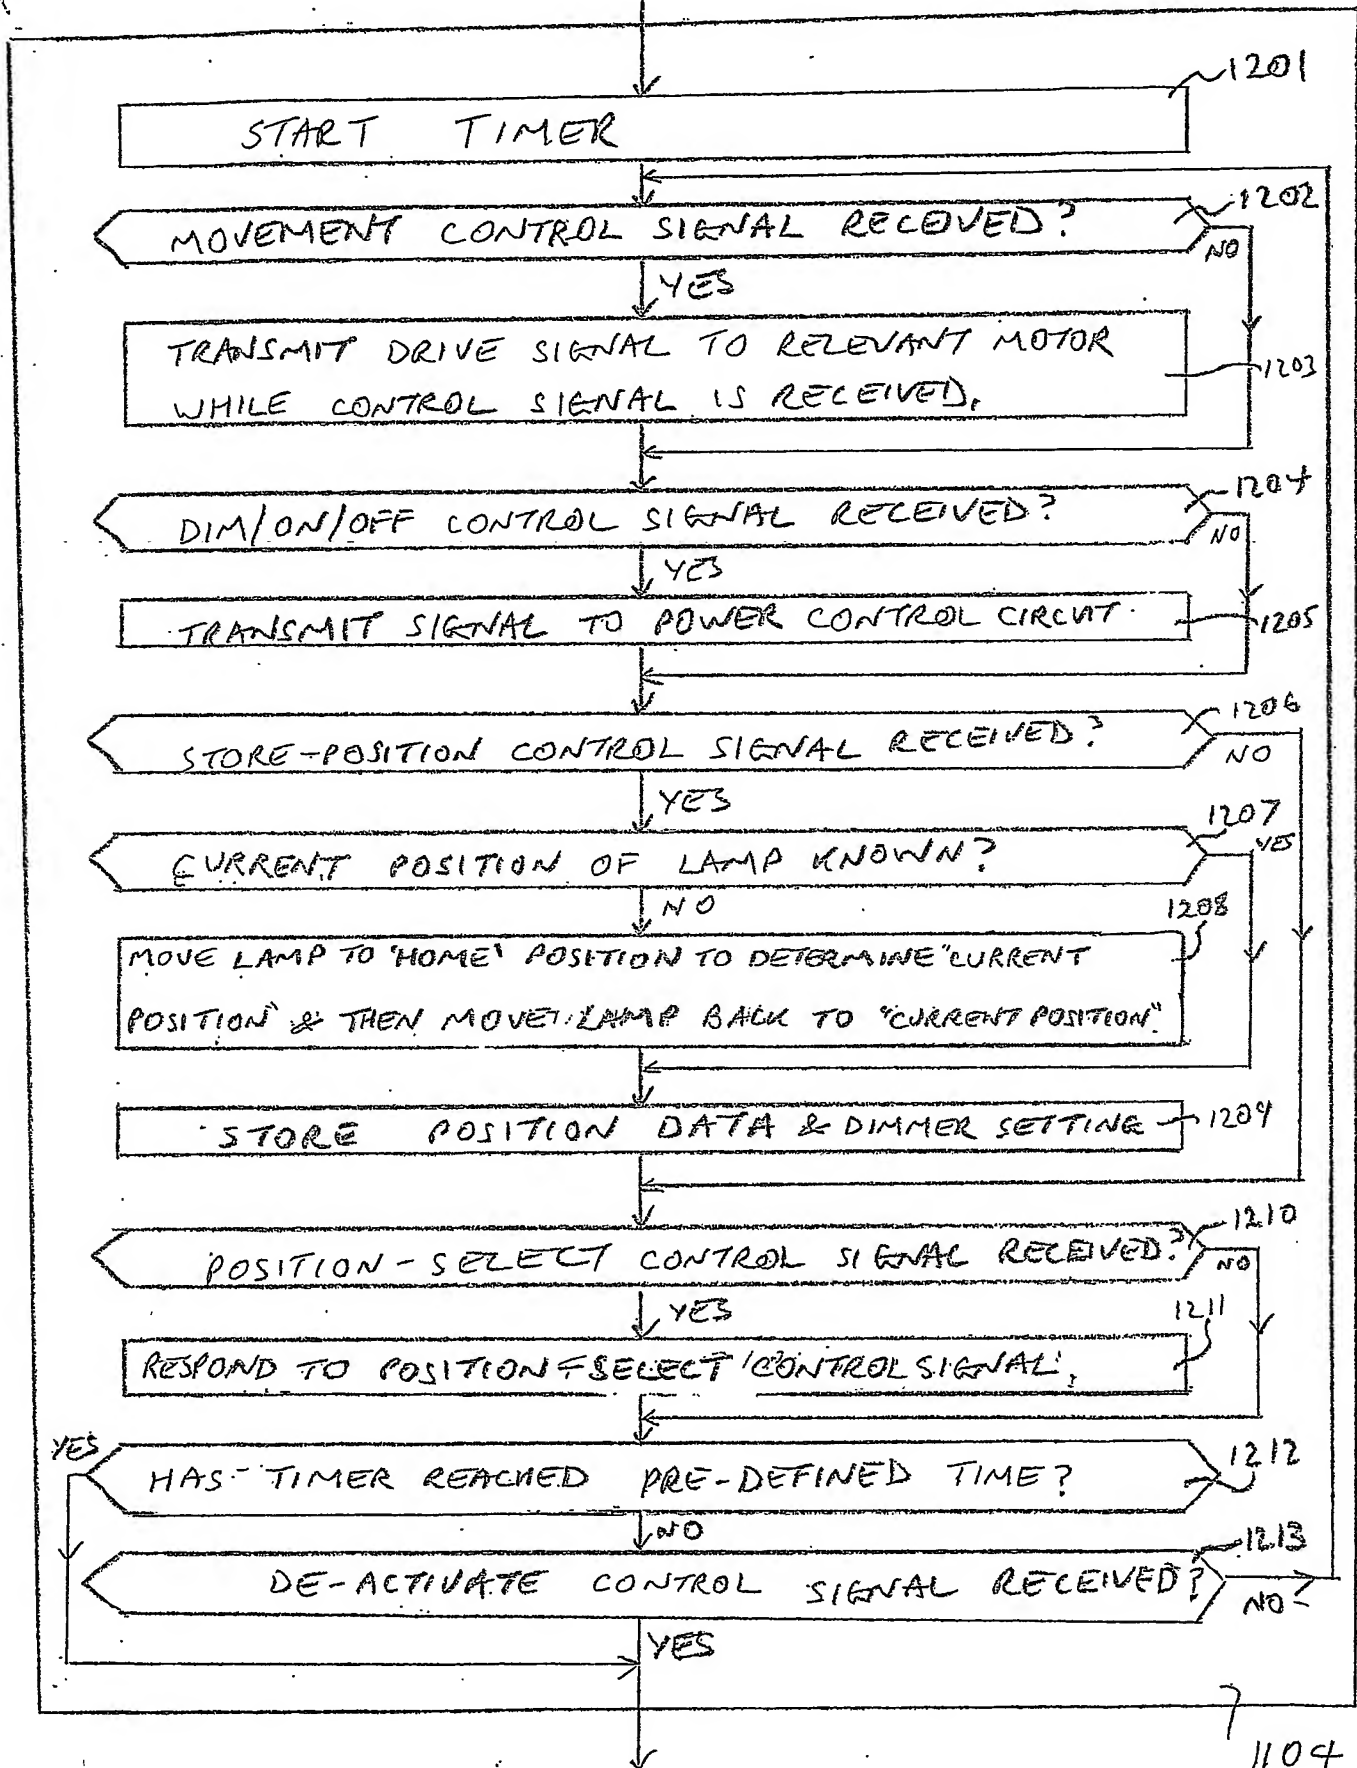 1201
START TIMER
1202
MOVEMENT CONTROL SIGNAL RECEIVED?
NO
YES
TRANSMIT DRIVE SIGNAL TO RELEVANT MOTOR
WHILE CONTROL SIGNAL IS RECEIVED.
1203
1204
DIM/ON/OFF CONTROL SIGNAL RECEIVED?
NO
YES
TRANSMIT SIGNAL TO POWER CONTROL CIRCUIT.
1205
1206
STORE-POSITION CONTROL SIGNAL RECEIVED?
NO
YES
1207
CURRENT POSITION OF LAMP KNOWN?
YES
NO
1208
MOVE LAMP TO 'HOME' POSITION TO DETERMINE "CURRENT
POSITION" & THEN MOVE LAMP BACK TO "CURRENT POSITION".
STORE POSITION DATA & DIMMER SETTING
1209
1210
POSITION-SELECT CONTROL SIGNAL RECEIVED?
NO
YES
1211
RESPOND TO POSITION-SELECT 'CONTROL SIGNAL'.
YES
HAS TIMER REACHED PRE-DEFINED TIME?
1212
NO
1213
DE-ACTIVATE CONTROL SIGNAL RECEIVED?
NO
YES
1104